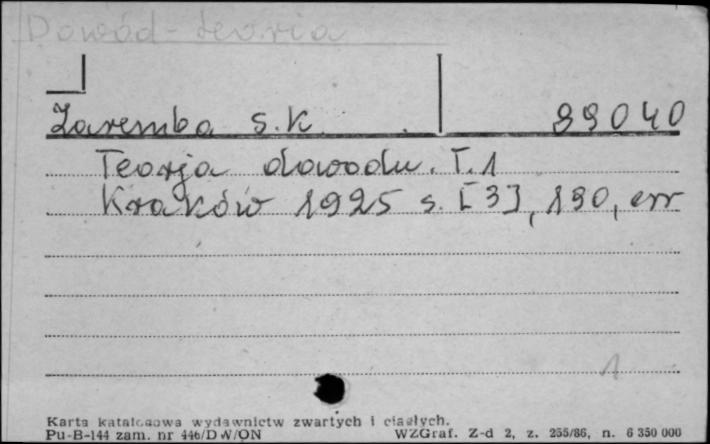 Dowód - teoria
Zaremba S.K. 99040
Teorja dowodu. T.1
Kraków 1925 s. [3], 190, err
1
Karta katalogowa wydawnictw zwartych i ciągłych.
Pu-B-144 zam. nr 446/DW/ON WZGraf. Z-d 2, z. 255/86, n. 6 350 000